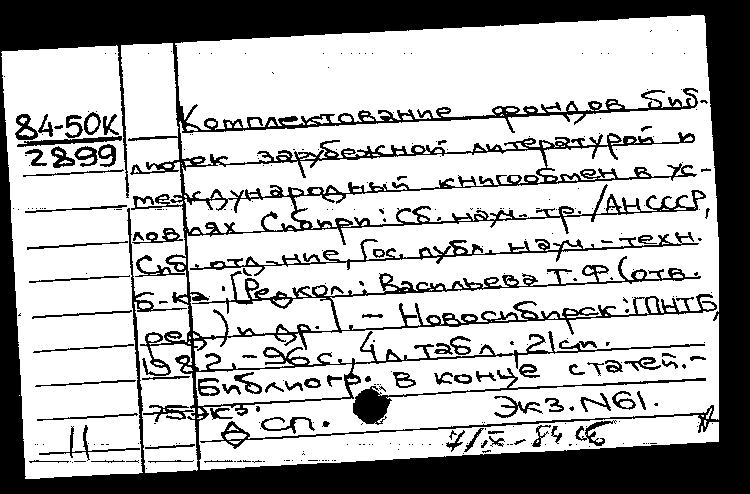 84-50К
2899
Комплектование фондов биб-
лиотек зарубежной литературой и
международный книгообмен в ус-
ловиях Сибири: Сб. науч. тр./АНСССР,
Сиб. отд-ние, Гос. публ. науч.-техн.
б-ка; [Редкол.: Васильева Т.Ф.(отв.
ред.) и др.]. - Новосибирск: ГПНТБ,
1982. - 96 с., 4 л. табл.; 21 см.
Библиогр. в конце статей. -
75 экз.
Экз. N61.
11
Δ сп.